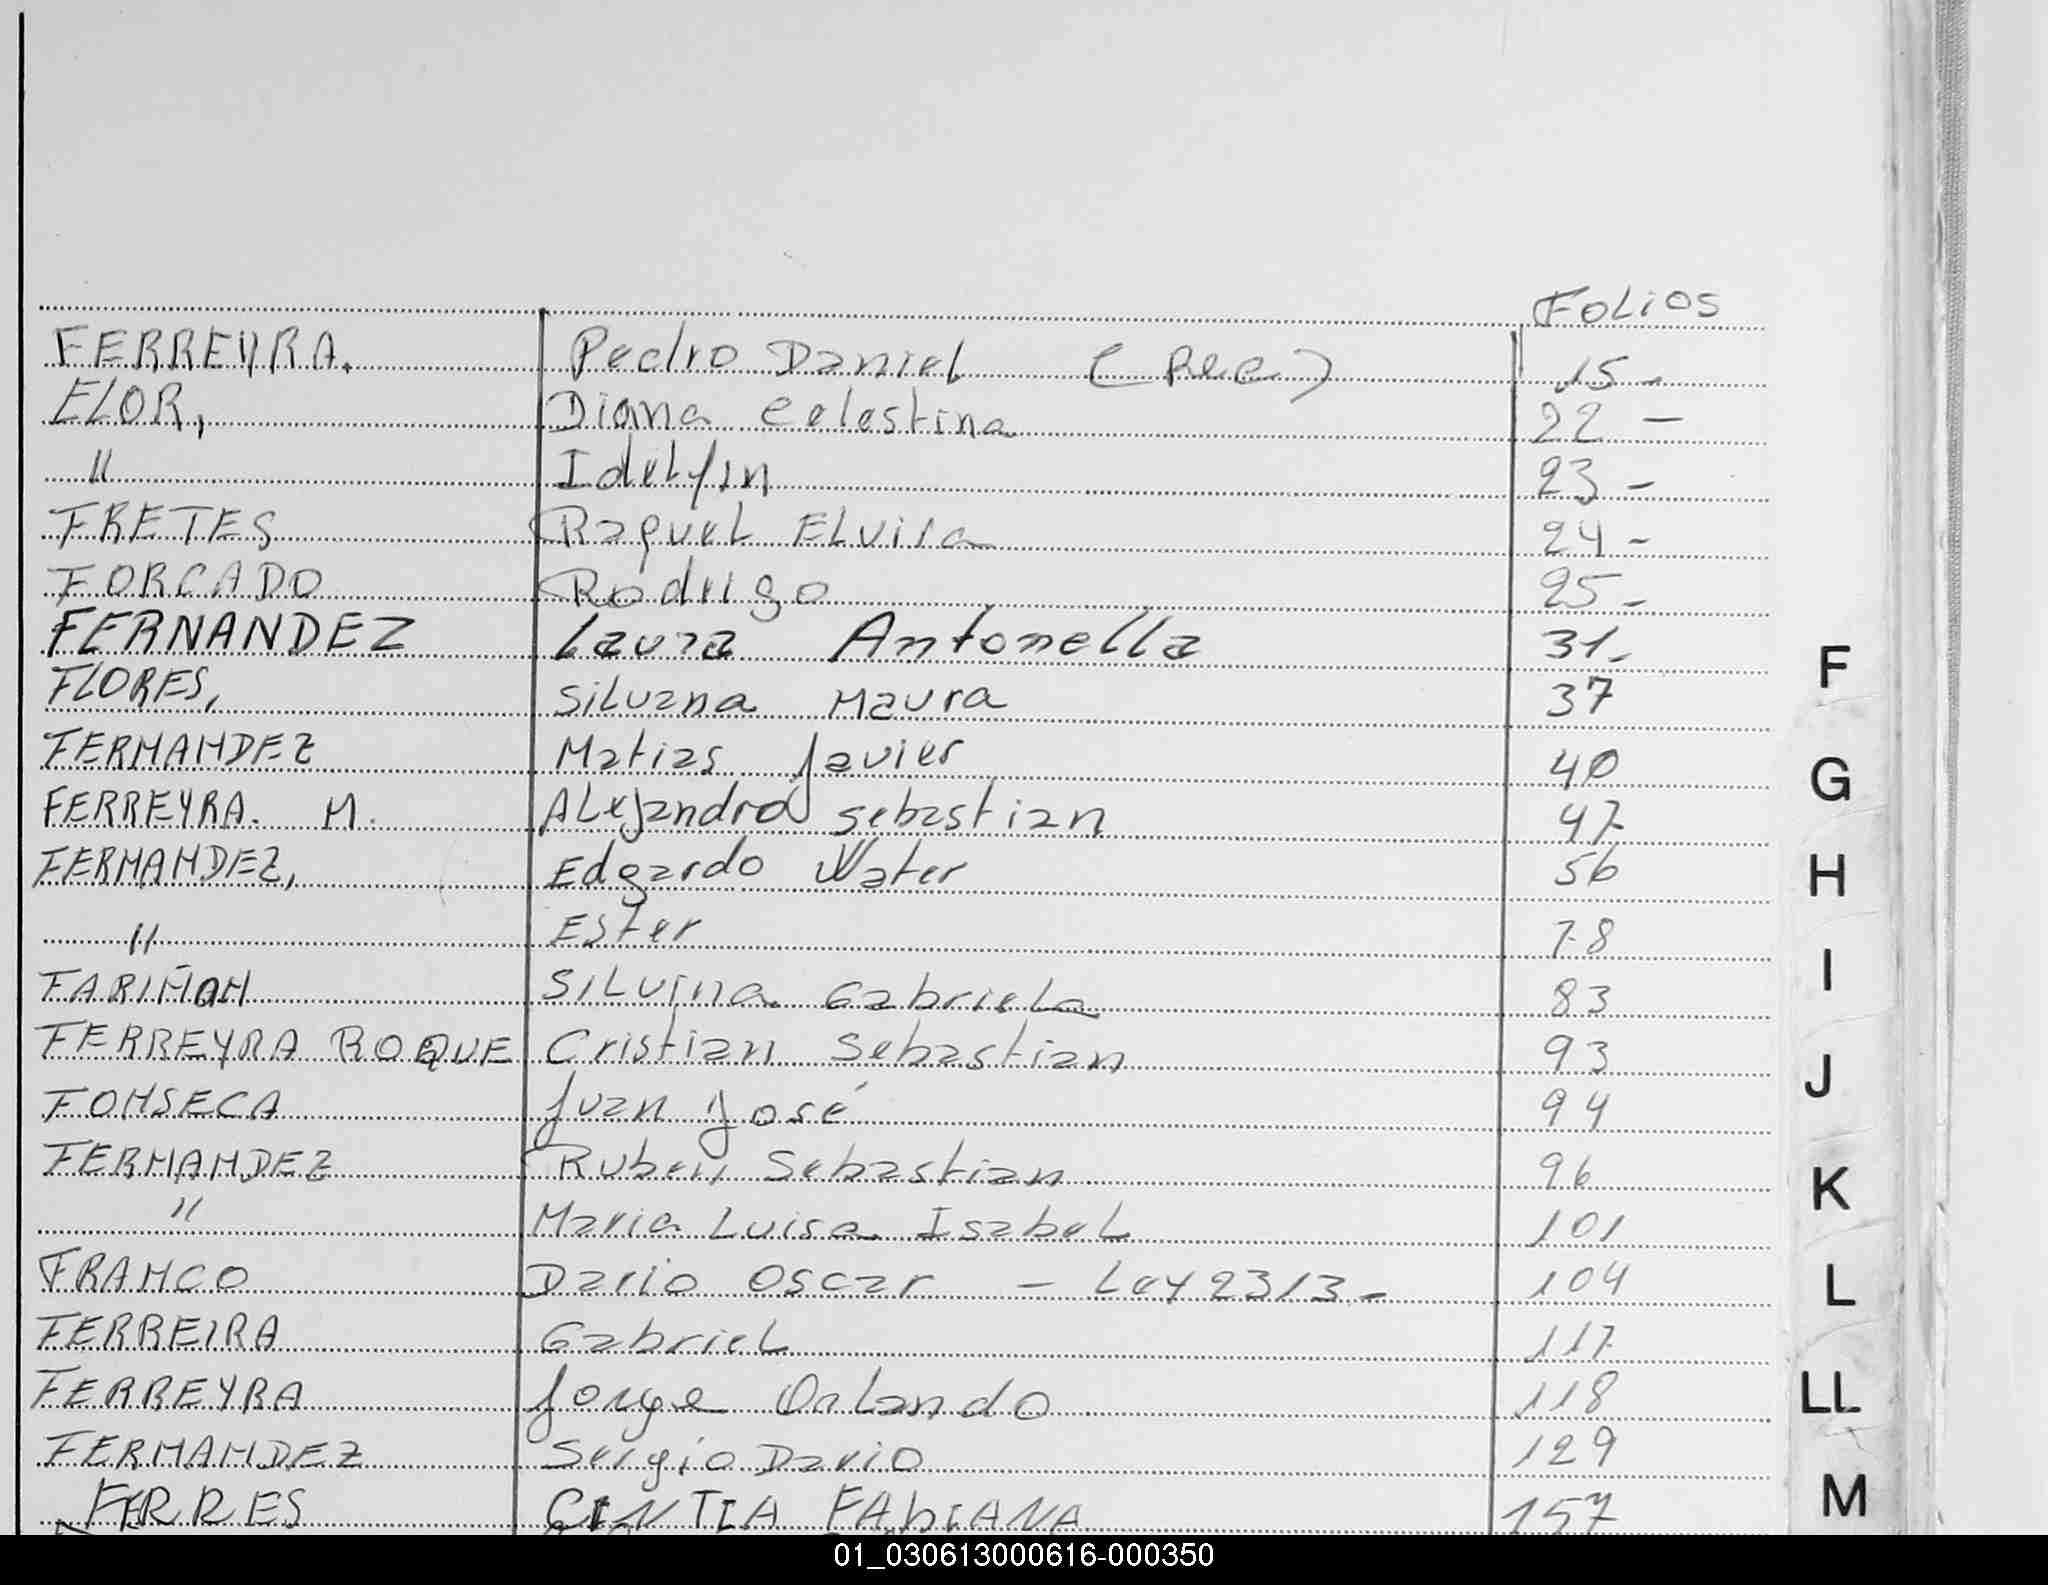 FOLIOS
FERREYRA. Pedro Daniel (Rec) 15 -
FLOR, Diana Celestina 22 -
" Idelfin 23 -
FRETES Raquel Elvira 24 -
FORCADO Rodrigo 25 -
FERNANDEZ Laura Antonella 31 -
FLORES, Silvana Maura 37
FERNANDEZ Matias Javier 40
FERREYRA. M. Alejandro Sebastian 47
FERNANDEZ, Edgardo Water 56
" Ester 78
FARIÑON Silvina Gabriela 83
FERREYRA ROQUE Cristian Sebastian 93
FONSECA Juan José 94
FERNANDEZ Ruben Sebastian 96
" Maria Luisa Isabel 101
FRANCO Dario Oscar - Ley 2313 - 104
FERREIRA Gabriel 117
FERREYRA Jorge Orlando 118
FERNANDEZ Sergio Dario 129
FERRES CINTIA FABIANA 157
F
G
H
I
J
K
L
LL
M
01_030613000616-000350